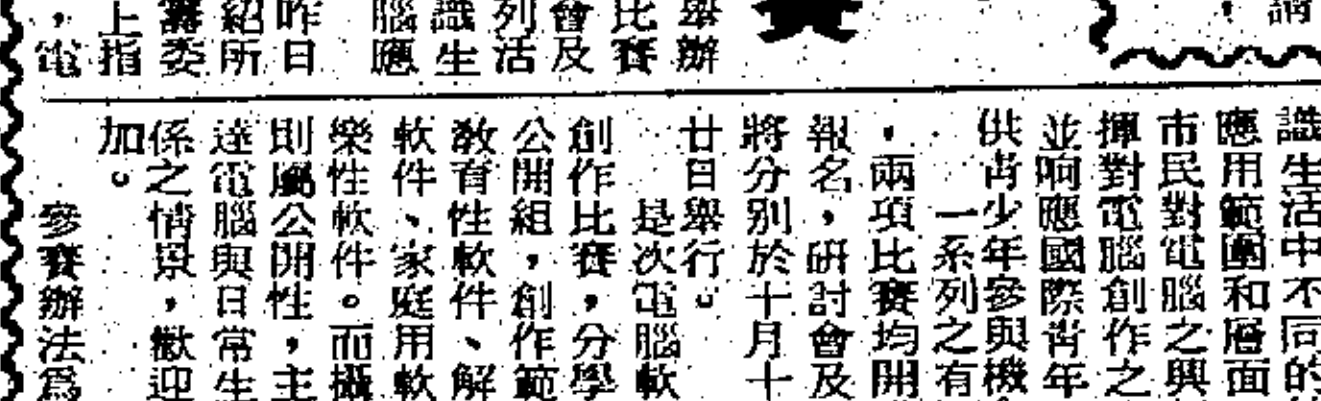 舉辦
比賽
會及
列活
識生
腦應
昨日
紹所
籌委
上指
，電
識生活中不同的
應用範圍和層面
市民對電腦之興
揮對電腦創作之
並响應國際青年
供青少年參與機
一系列之有
，兩項比賽均開
報名，研討會及
將分別於十月十
廿日舉行。
是次電腦軟
創作比賽，分學
公開組，創作範
教育性軟件、解
軟件、家庭用軟
樂性軟件。而攝
則屬公開性，主
達電腦與日常生
係之情景，歡迎
加。
參賽辦法爲